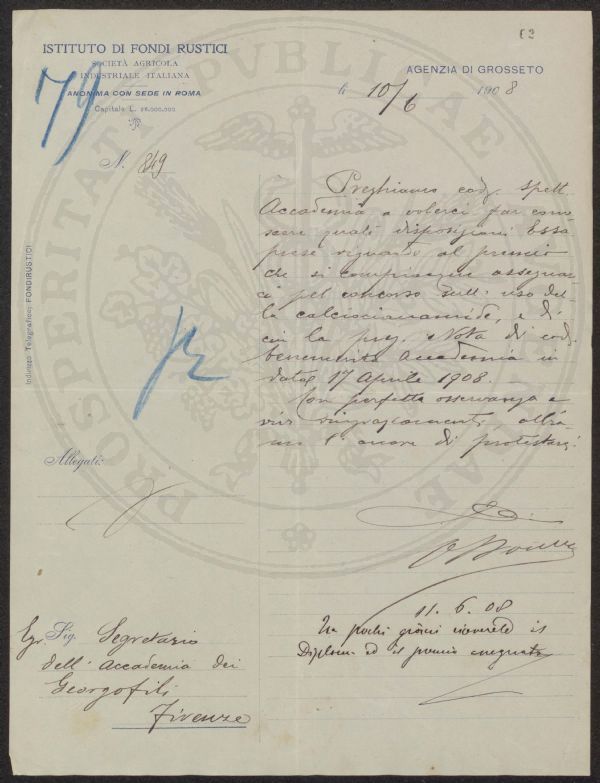 63
ISTITUTO DI FONDI RUSTICI
SOCIETÀ AGRICOLA
INDUSTRIALE ITALIANA
ANONIMA CON SEDE IN ROMA
Capitale L.
79
AGENZIA DI GROSSETO
li 10/6 1908
N. 849
Preghiamo cod. Spett.
Accademia a volerci far cono-
scere quali disposizioni Essa
prese riguardo al premio
che si compiacque assegnar-
ci pel concorso sull' uso del-
la calciocianamide, e di
cui la preg. Nota di cod.
benemerita Accademia in
data 17 Aprile 1908. —
Con perfetta osservanza e
vivi ringraziamenti, abbia-
mo l' onore di protestarci
Indirizzo Telegrafico: FONDIRUSTICI
Allegati:
11. 6. 08
Fra pochi giorni riceverete il
Diploma ed il premio
Egr. Sig. Segretario
dell' Accademia dei
Georgofili
Firenze
PROSPERITATI PUBLICAE